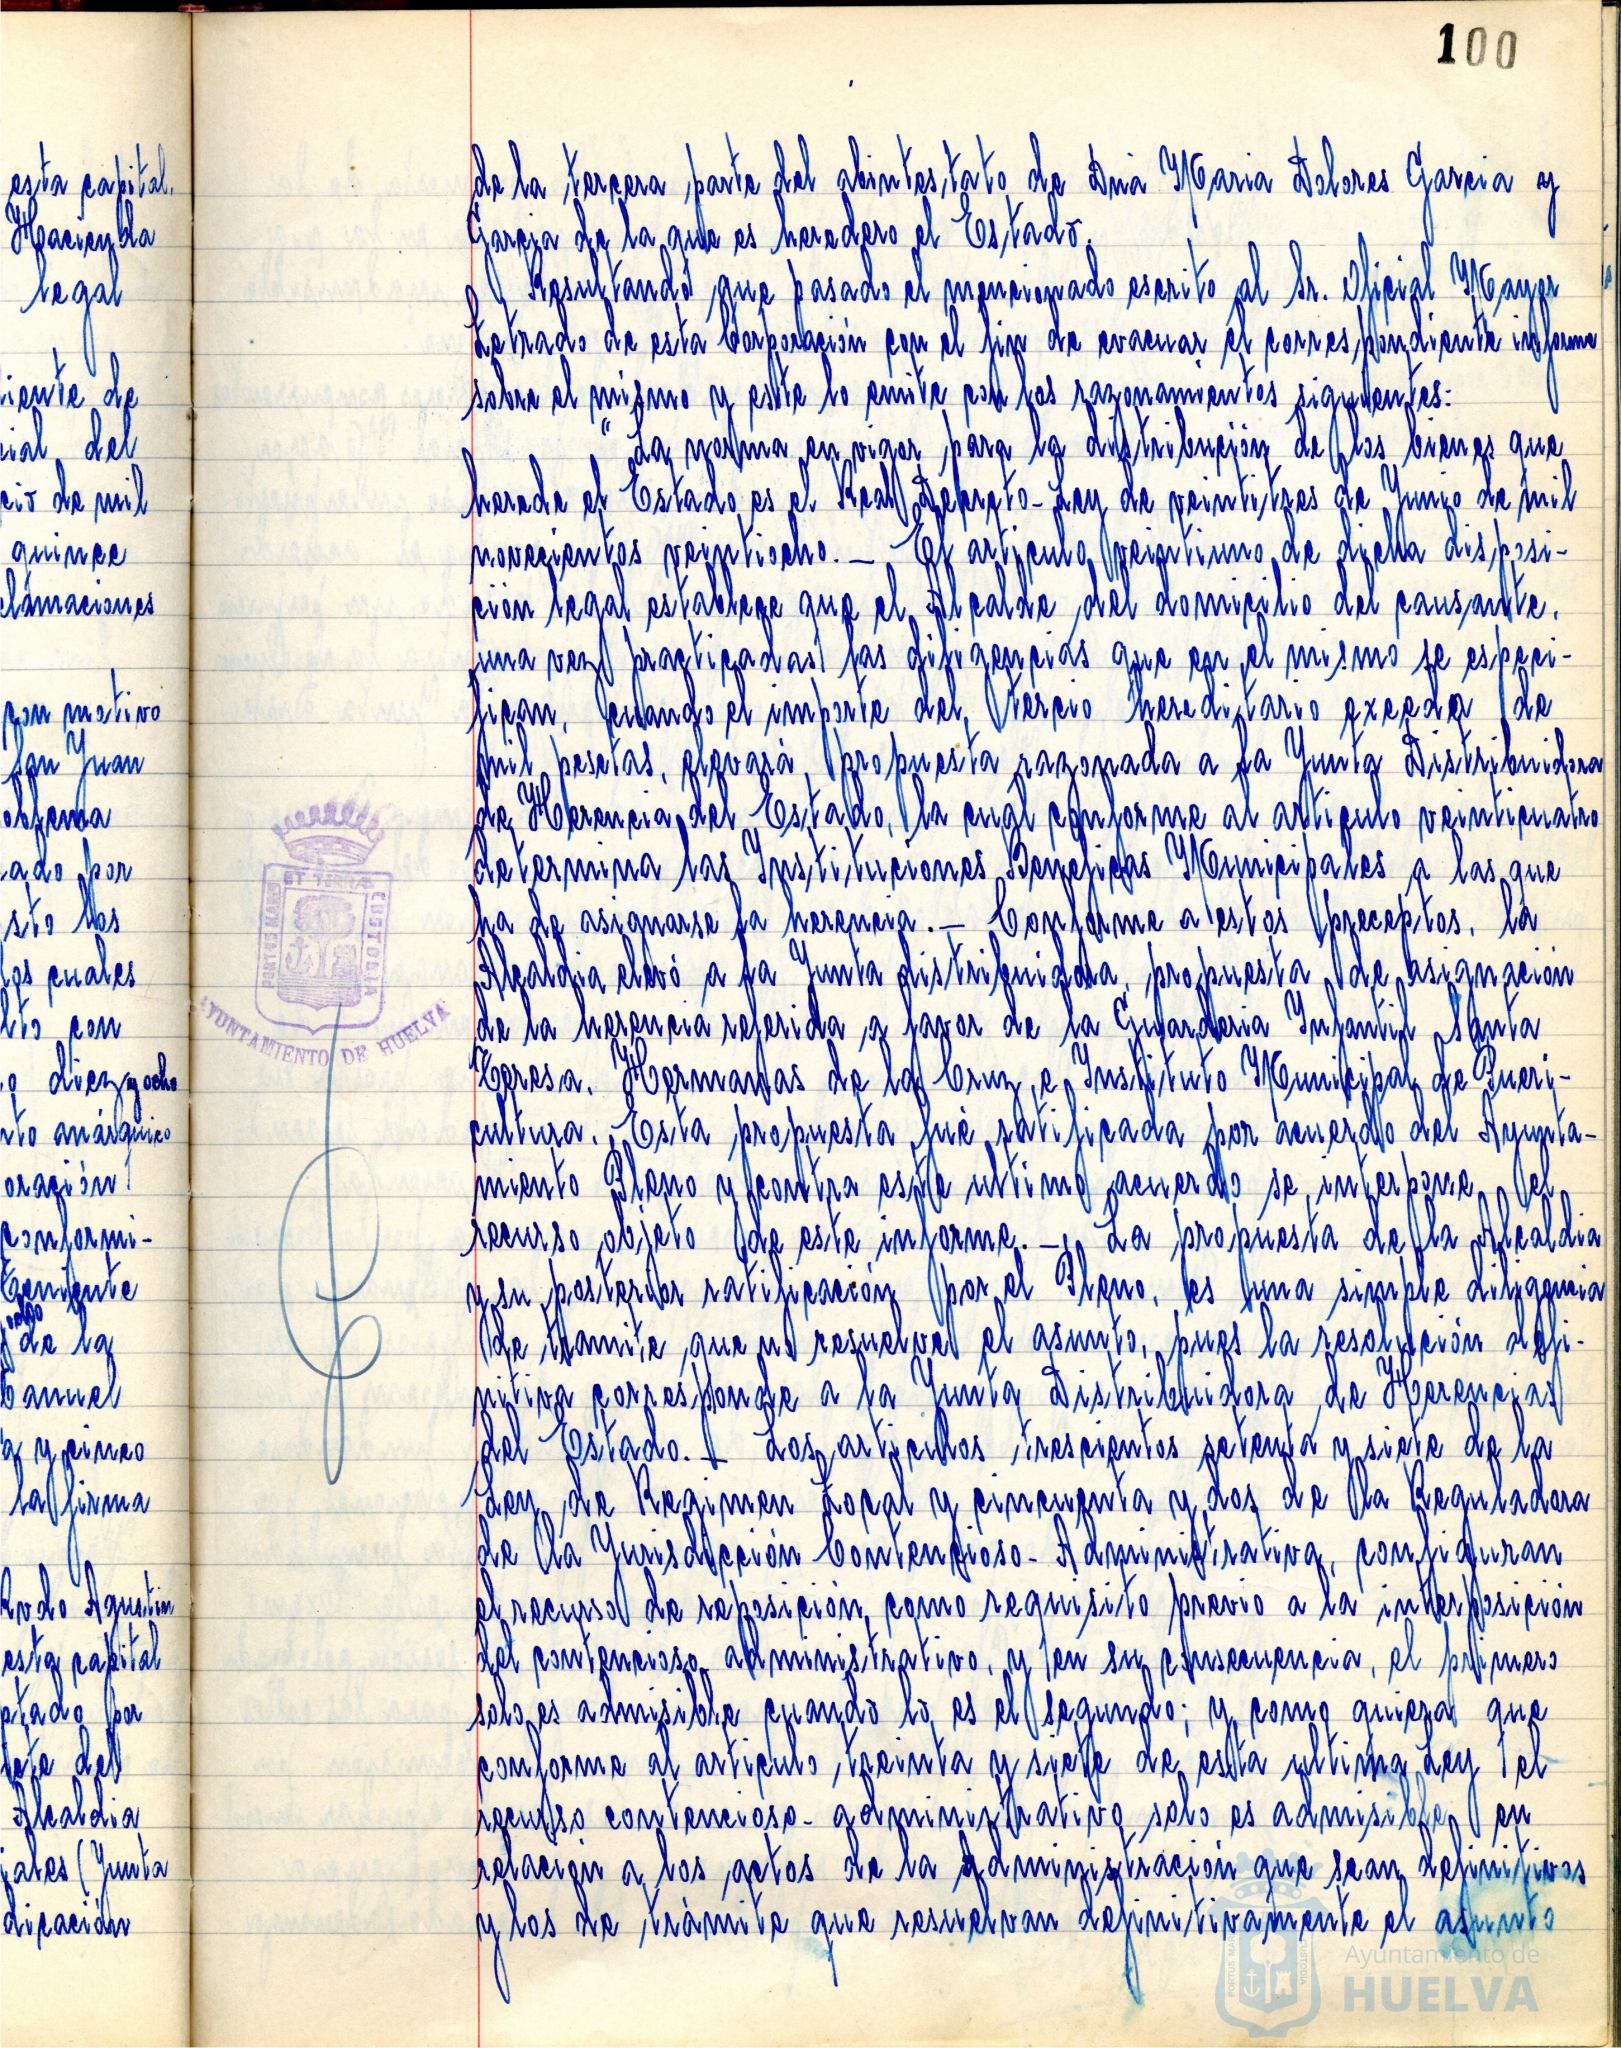 100
esta capital.
Hacienda
legal
iente de
ial del
cio de mil
quince
clamaciones
con motivo
San Juan
oblema
ado por
sto los
los cuales
lto con
o diez y ocho
nto anárquico
oración
conformi-
Teniente
de la
Manuel
a y cinco
la firma
Rvdo Agustin
esta capital
ptado por
iete del
Alcaldia
iales (Junta
dicación
de la tercera parte del abintestato de Dña Maria Dolores Garcia y
Garcia de la que es heredero el Estado.
Resultando que pasado el mencionado escrito al Sr. Oficial Mayor
Letrado de esta Corporación con el fin de evacuar el correspondiente informe
sobre el mismo y este lo emite con los razonamientos siguientes:
"La norma en vigor para la distribución de los bienes que
herede el Estado es el Real Decreto-Ley de veintitres de Junio de mil
novecientos veintiocho.- El articulo veintiuno de dicha disposi-
ción legal establece que el Alcalde del domicilio del causante,
una vez practicadas las diligencias que en el mismo se especi-
fican, cuando el importe del tercio hereditario exceda de
mil pesetas, elevará, propuesta razonada a la Junta Distribuidora
de Herencia del Estado, la cual conforme al articulo veinticuatro
determina las Instituciones Beneficas Municipales a las que
ha de asignarse la herencia.- Conforme a estos preceptos, la
Alcaldia elevó a la Junta distribuidora, propuesta de asignación
de la herencia referida a favor de la Guarderia Infantil Santa
Teresa, Hermanas de la Cruz e Instituto Municipal de Pueri-
cultura. Esta propuesta fué ratificada por acuerdo del Ayunta-
miento Pleno y contra este ultimo acuerdo se interpone el
recurso objeto de este informe.- La propuesta de la Alcaldia
y su posterior ratificación por el Pleno, es una simple diligencia
de tramite que no resuelve el asunto, pues la resolución defi-
nitiva corresponde a la Junta Distribuidora de Herencias
del Estado.- Los articulos trescientos setenta y siete de la
Ley de Regimen Local y cincuenta y dos de la Reguladora
de la Jurisdicción Contencioso-Administrativa, configuran
el recurso de reposición como requisito previo a la interposición
del contencioso administrativo, y en su consecuencia, el primero
solo es admisible cuando lo es el segundo; y como quiera que
conforme al articulo treinta y siete de esta ultima Ley el
recurso contencioso-administrativo solo es admisible en
relación a los actos de la administración que sean definitivos
y los de trámite que resuelvan definitivamente el asunto
PORTUS MARIS
ET TERRAE
CUSTODIA
AYUNTAMIENTO DE HUELVA
Ayuntamiento de
HUELVA